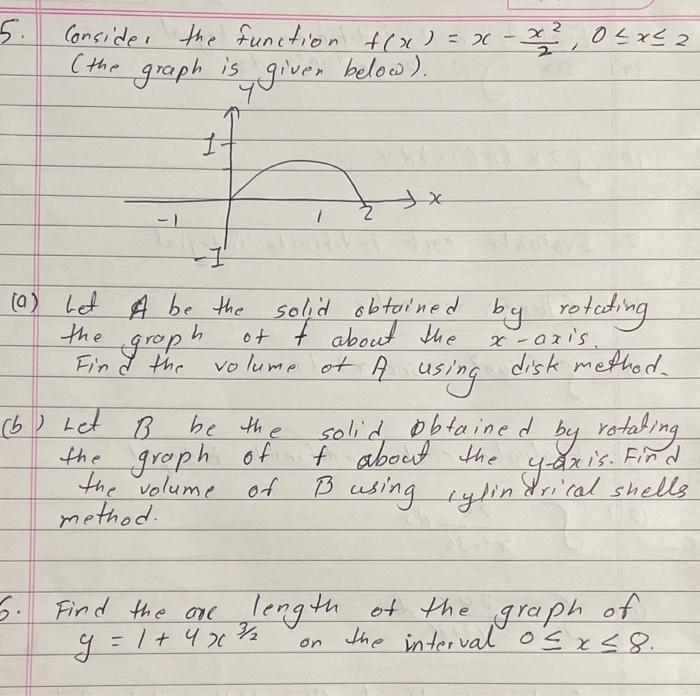 5. Consider the function f(x) = x - x²/2, 0 ≤ x ≤ 2
(the graph is given below).
y
1
x
-1 1 2
-1
(a) Let A be the solid obtained by rotating
the graph of f about the x-axis.
Find the volume of A using disk method.
(b) Let B be the solid obtained by rotating
the graph of f about the y-axis. Find
the volume of B using cylindrical shells
method.
6. Find the arc length of the graph of
y = 1 + 4x^3/2 on the interval 0 ≤ x ≤ 8.